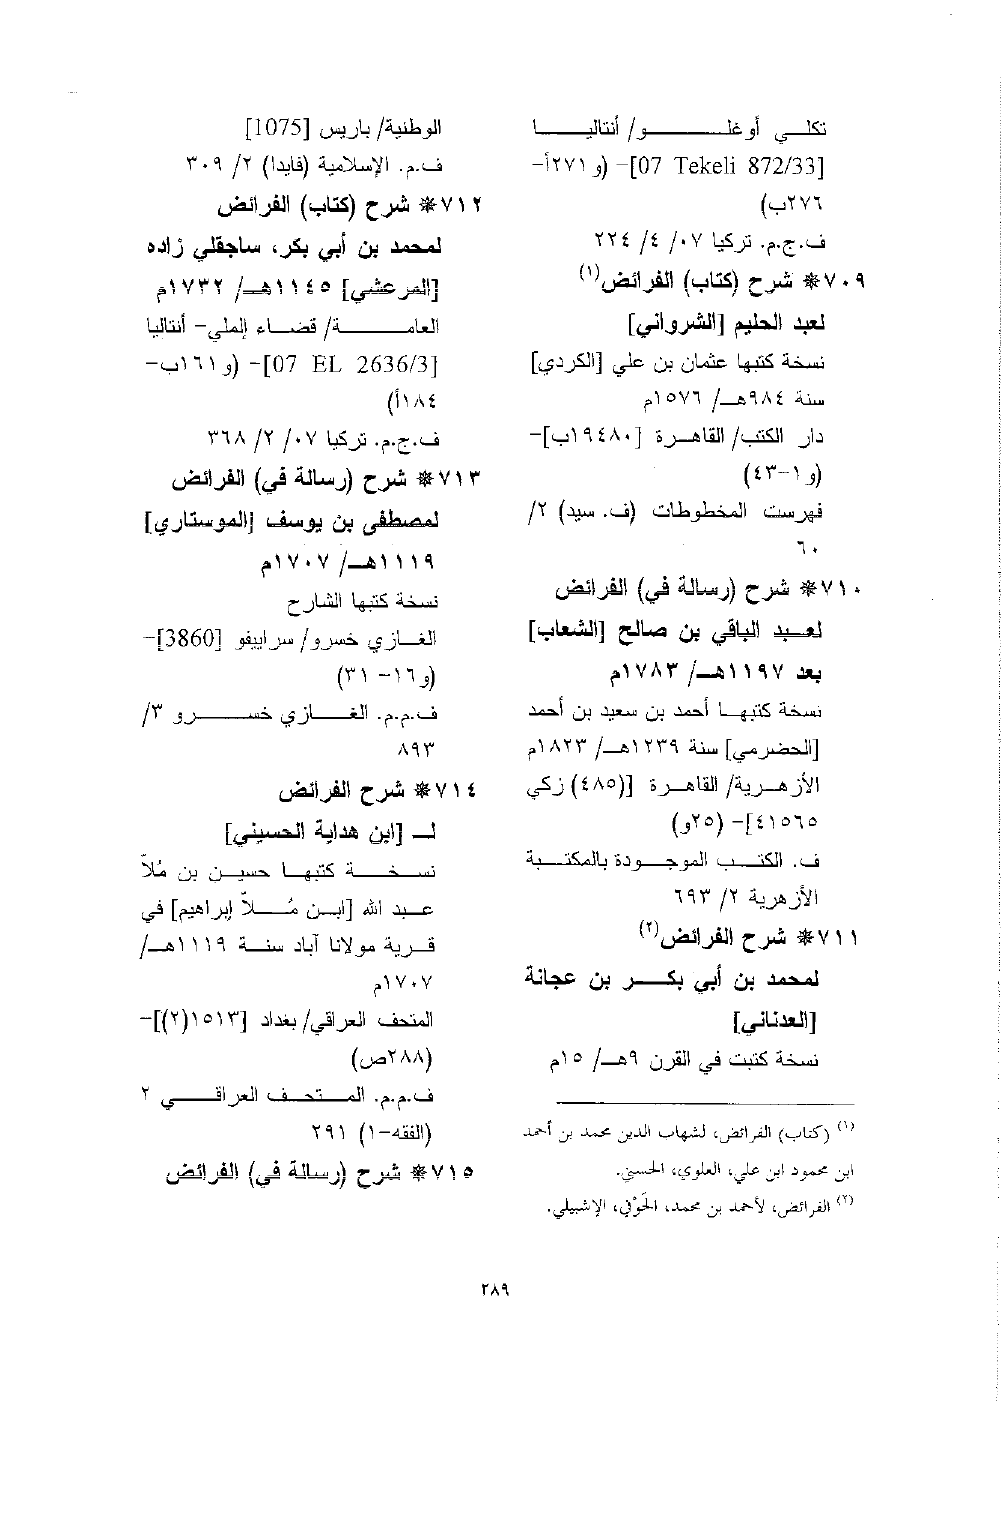 تكلي أوغلو/ أنتاليا
[07 Tekeli 872/33]- (و٢٧١أ-
٢٧٦ب)
ف.ج.م. تركيا ٠٧/ ٤/ ٢٢٤
٧٠٩* شرح (كتاب) الفرائض(١)
لعبد الحليم [الشرواني]
نسخة كتبها عثمان بن علي [الكردي]
سنة ٩٨٤هـ/ ١٥٧٦م
دار الكتب/ القاهرة [١٩٤٨٠ب]-
(و١-٤٣)
فهرست المخطوطات (ف. سيد) ٢/
٦٠
٧١٠* شرح (رسالة في) الفرائض
لعبد الباقي بن صالح [الشعاب]
بعد ١١٩٧هـ/ ١٧٨٣م
نسخة كتبها أحمد بن سعيد بن أحمد
[الحضرمي] سنة ١٢٣٩هـ/ ١٨٢٣م
الأزهرية/ القاهرة [(٤٨٥) زكي
٤١٥٦٥]- (٢٥و)
ف. الكتب الموجودة بالمكتبة
الأزهرية ٢/ ٦٩٣
٧١١* شرح الفرائض(٢)
لمحمد بن أبي بكر بن عجانة
[العدناني]
نسخة كتبت في القرن ٩هـ/ ١٥م
(١) (كتاب) الفرائض، لشهاب الدين محمد بن أحمد
ابن محمود ابن علي، العلوي، الحسني.
(٢) الفرائض، لأحمد بن محمد، الحَوْفي، الإشبيلي.
الوطنية/ باريس [1075]
ف.م. الإسلامية (فايدا) ٢/ ٣٠٩
٧١٢* شرح (كتاب) الفرائض
لمحمد بن أبي بكر، ساجقلي زاده
[المرعشي] ١١٤٥هـ/ ١٧٣٢م
العامة/ قضاء إلملي- أنتاليا
[07 EL 2636/3]- (و١٦١ب-
١٨٤أ)
ف.ج.م. تركيا ٠٧/ ٢/ ٣٦٨
٧١٣* شرح (رسالة في) الفرائض
لمصطفى بن يوسف [الموستاري]
١١١٩هـ/ ١٧٠٧م
نسخة كتبها الشارح
الغازي خسرو/ سراييفو [3860]-
(و١٦- ٣١)
ف.م.م. الغازي خسرو ٣/
٨٩٣
٧١٤* شرح الفرائض
لـ [ابن هداية الحسيني]
نسخة كتبها حسين بن مُلاّ
عبد الله [ابن مُلاّ إبراهيم] في
قرية مولانا آباد سنة ١١١٩هـ/
١٧٠٧م
المتحف العراقي/ بغداد [١٥١٣(٢)]-
(٢٨٨ص)
ف.م.م. المتحف العراقي ٢
(الفقه-١) ٢٩١
٧١٥* شرح (رسالة في) الفرائض
٢٨٩